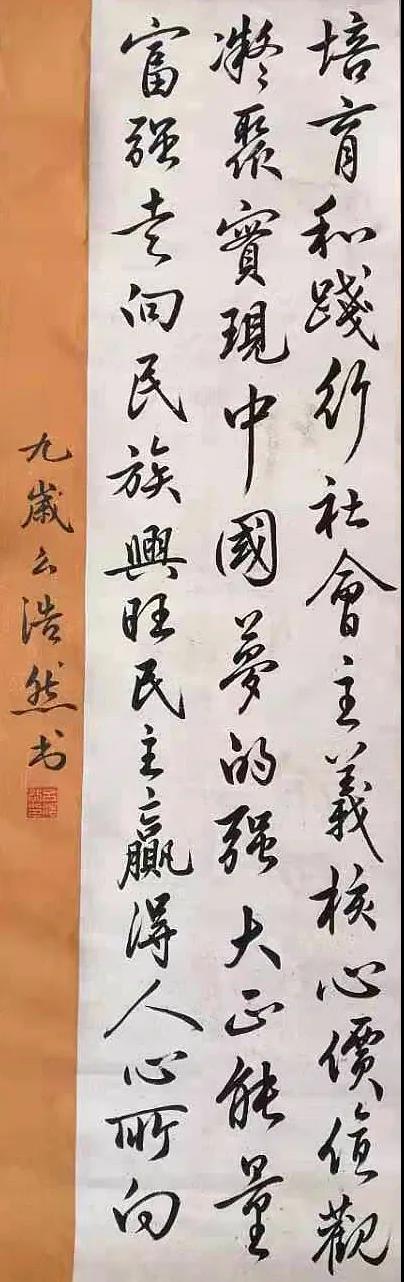 培育和踐行社會主義核心價值觀
凝聚實現中國夢的强大正能量
富强走向民族興旺民主贏得人心所向
九歲云浩然书